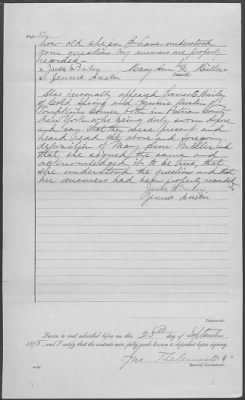 how old she is. I have understood
your questions my answers are properly
recorded
James E Bailey Mary Ann her Miller
Jennie Austin mark
Also personally appeared James E Bailey
of Cold Spring and Jennie Austin of
Tompkins Corners both in Putnam County
New York who being duly sworn depose
and say that they were present and
heard read the above and foregoing
deposition of Mary Ann Miller and
that she signed the same and
acknowledged it to be true, that
she understood the questions and that
her answers had been properly recorded
James E Bailey
Jennie Austin
Deponent.
Sworn to and subscribed before me this 25th day of September
189, and I certify that the contents were fully made known to deponent before signing.
Jno. T. Clements
Special Examiner.